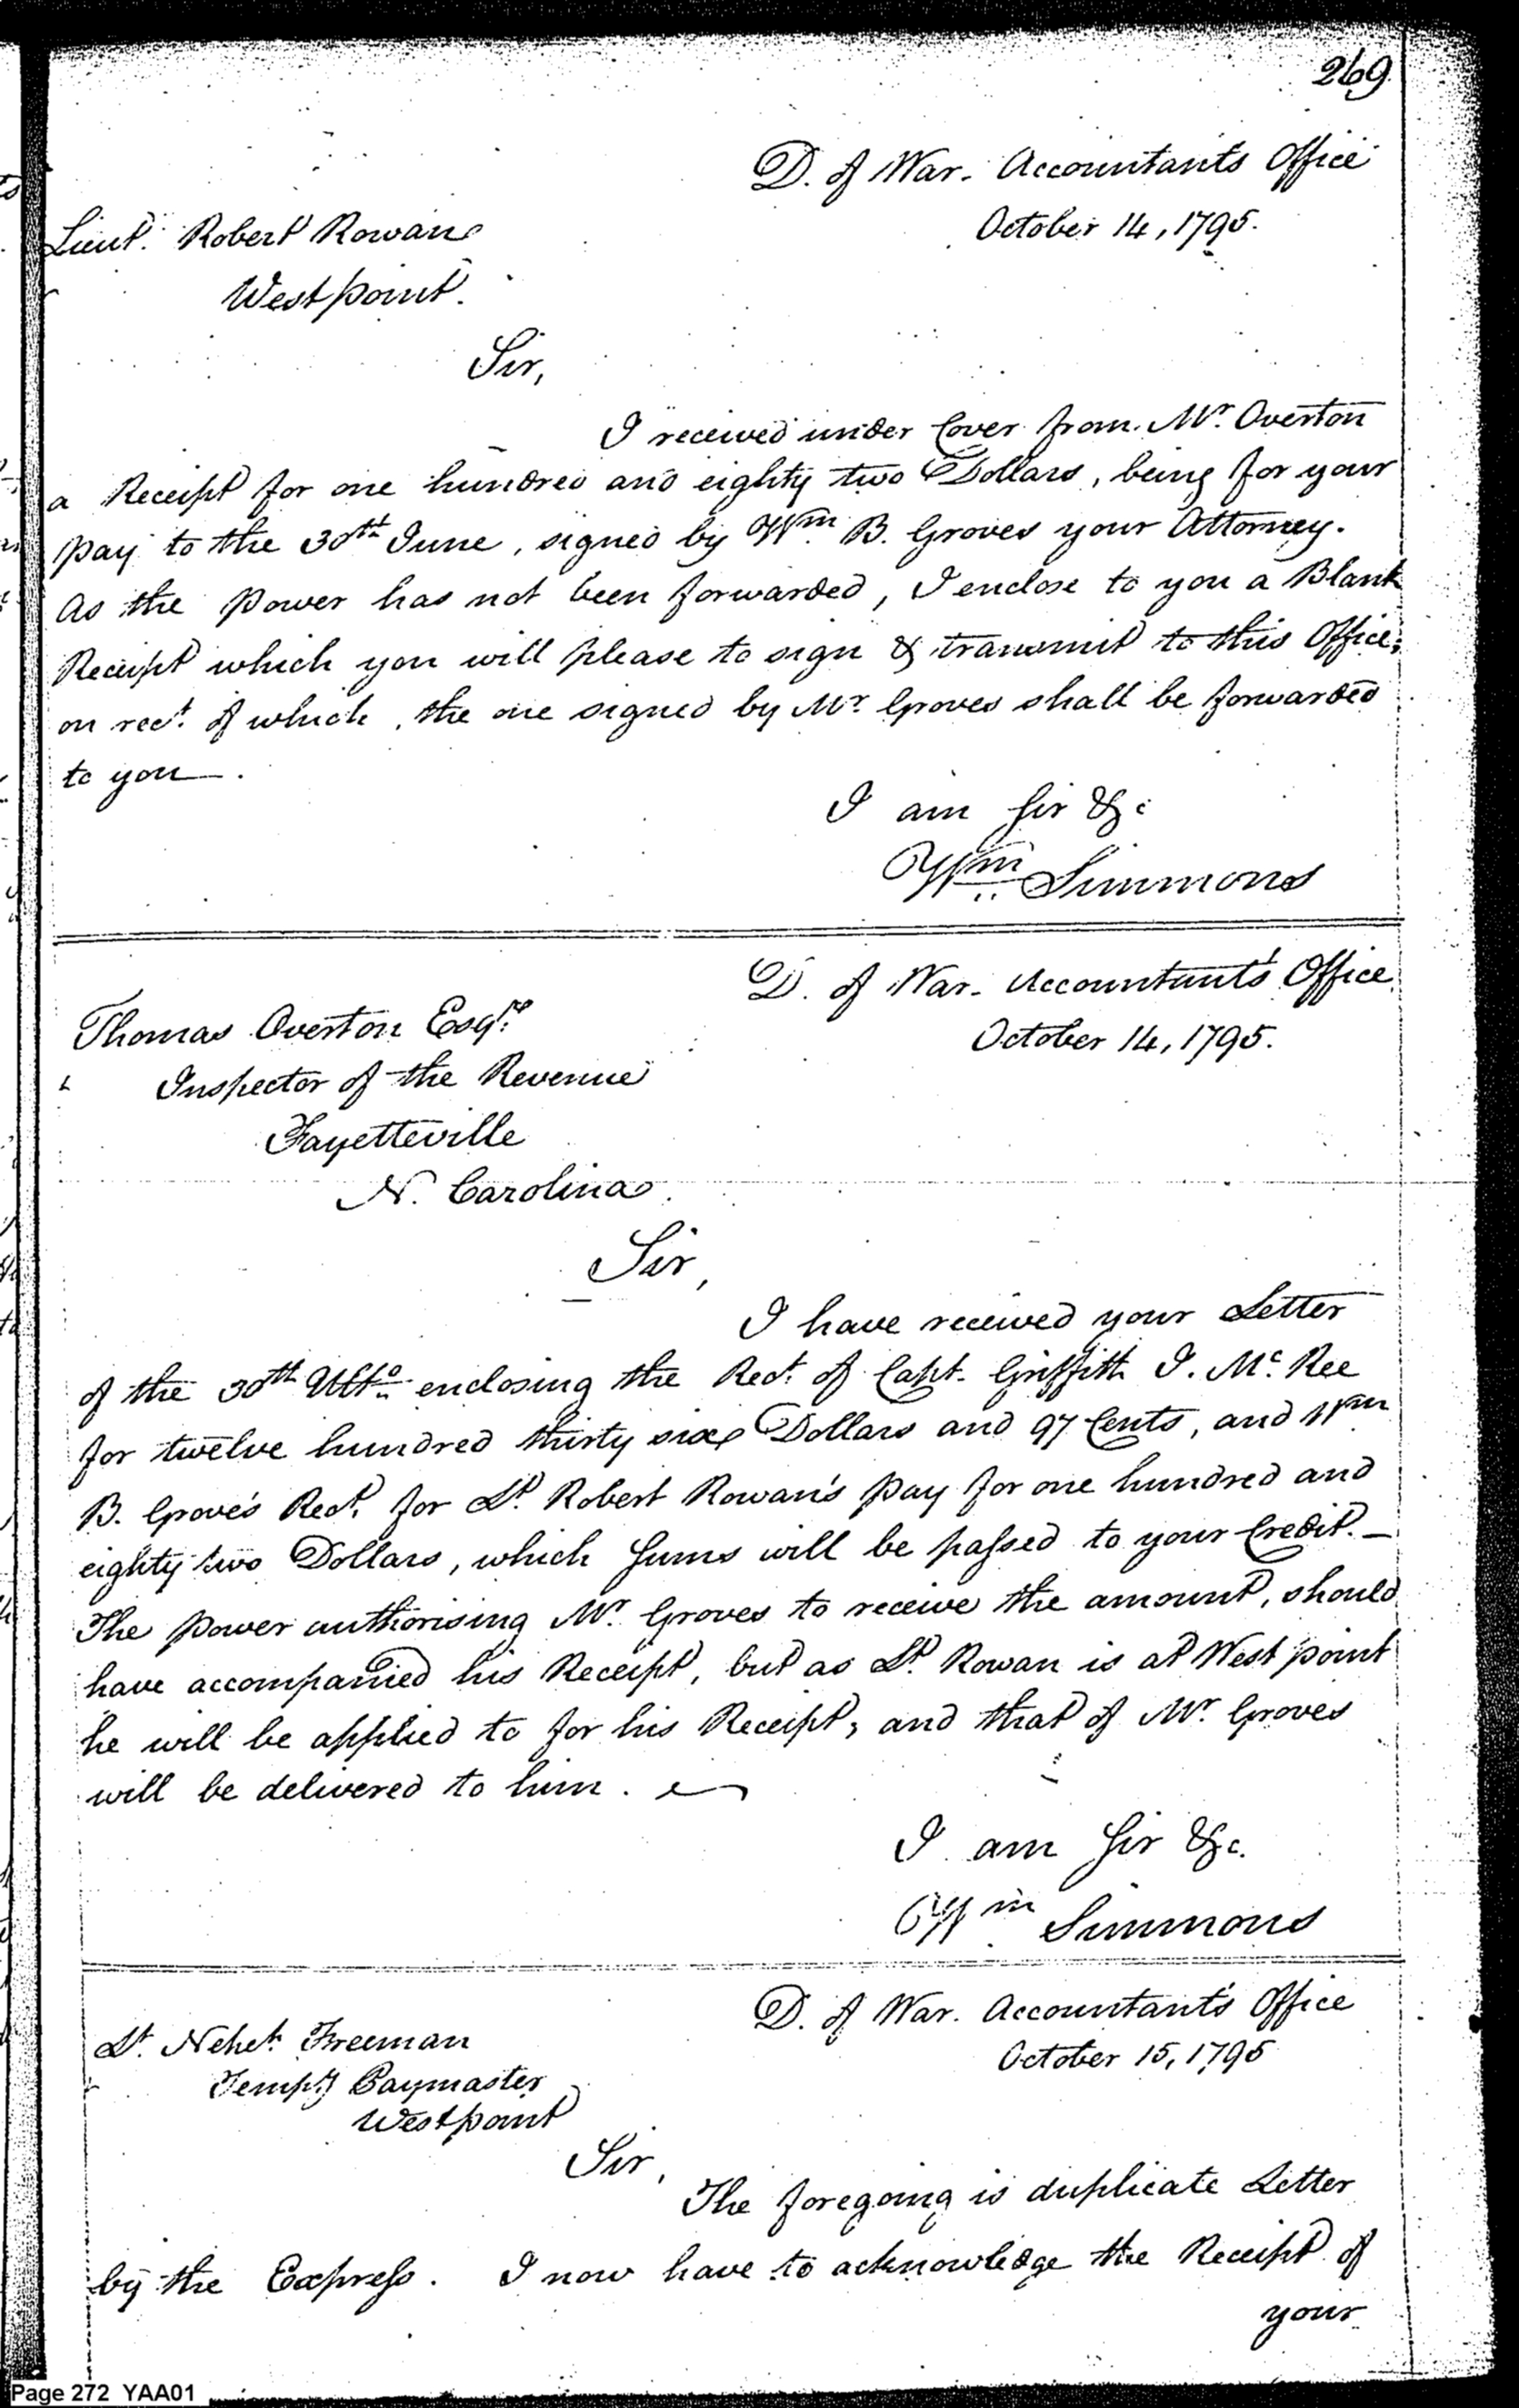 269
D. of War. Accountants Office
October 14, 1795.
Lieut. Robert Rowan
Westpoint.
Sir,
I received under Cover from Mr. Overton
a Receipt for one hundred and eighty two Dollars, being for your
pay to the 30th June, signed by Wm. B. Groves your Attorney.
As the Power has not been forwarded, I enclose to you a Blank
Receipt which you will please to sign & transmit to this Office;
on rect. of which, the one signed by Mr. Groves shall be forwarded
to you.
I am Sir &c
Wm Simmons
D. of War. Accountant's Office
October 14, 1795.
Thomas Overton Esqr.
Inspector of the Revenue
Fayetteville
N. Carolina.
Sir,
I have received your Letter
of the 30th Ulto. enclosing the Rect. of Capt. Griffith I. Mc. Ree
for twelve hundred thirty six Dollars and 97 Cents, and Wm
B. Grove's Rect. for Lt. Robert Rowan's pay for one hundred and
eighty two Dollars, which Sums will be passed to your Credit.—
The Power authorising Mr. Groves to receive the amount, should
have accompanied his Receipt, but as Lt. Rowan is at West point
he will be applied to for his Receipt, and that of Mr. Groves
will be delivered to him.
I am Sir &c.
Wm Simmons
D. of War. Accountant's Office
October 15, 1795
Lt. Nehet. Freeman
Tempy Paymaster
Westpoint
Sir,
The foregoing is duplicate Letter
by the Express. I now have to acknowledge the Receipt of
your
Page 272 YAA01